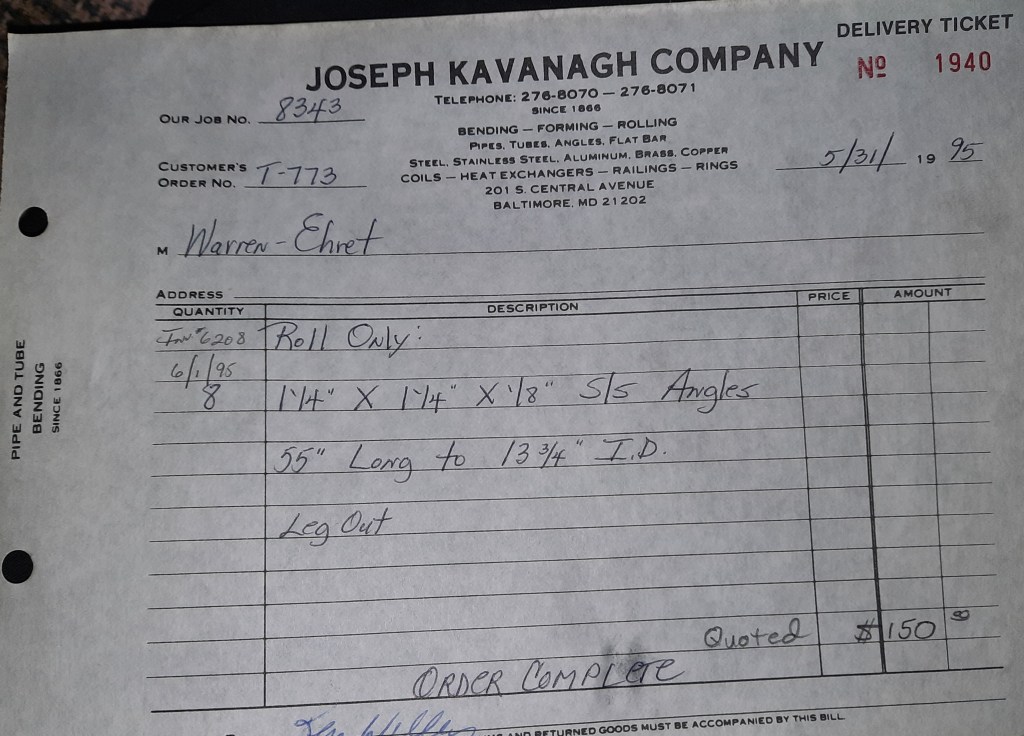 DELIVERY TICKET
JOSEPH KAVANAGH COMPANY
Nº 1940
TELEPHONE: 276-8070 — 276-8071
SINCE 1866
OUR JOB NO. 8343
BENDING — FORMING — ROLLING
PIPES, TUBES, ANGLES, FLAT BAR
STEEL, STAINLESS STEEL, ALUMINUM, BRASS, COPPER
COILS — HEAT EXCHANGERS — RAILINGS — RINGS
201 S. CENTRAL AVENUE
BALTIMORE, MD 21202
CUSTOMER'S
ORDER NO. T-773
5/31/ 19 95
M Warren-Ehret
ADDRESS
QUANTITY DESCRIPTION PRICE AMOUNT
Inv #6208 Roll Only:
6/1/95
8 1 1/4" X 1 1/4" X 1/8" S/S Angles
55" Long to 13 3/4" I.D.
Leg Out
Quoted $150 00
ORDER COMPLETE
AND RETURNED GOODS MUST BE ACCOMPANIED BY THIS BILL
PIPE AND TUBE
BENDING
SINCE 1866